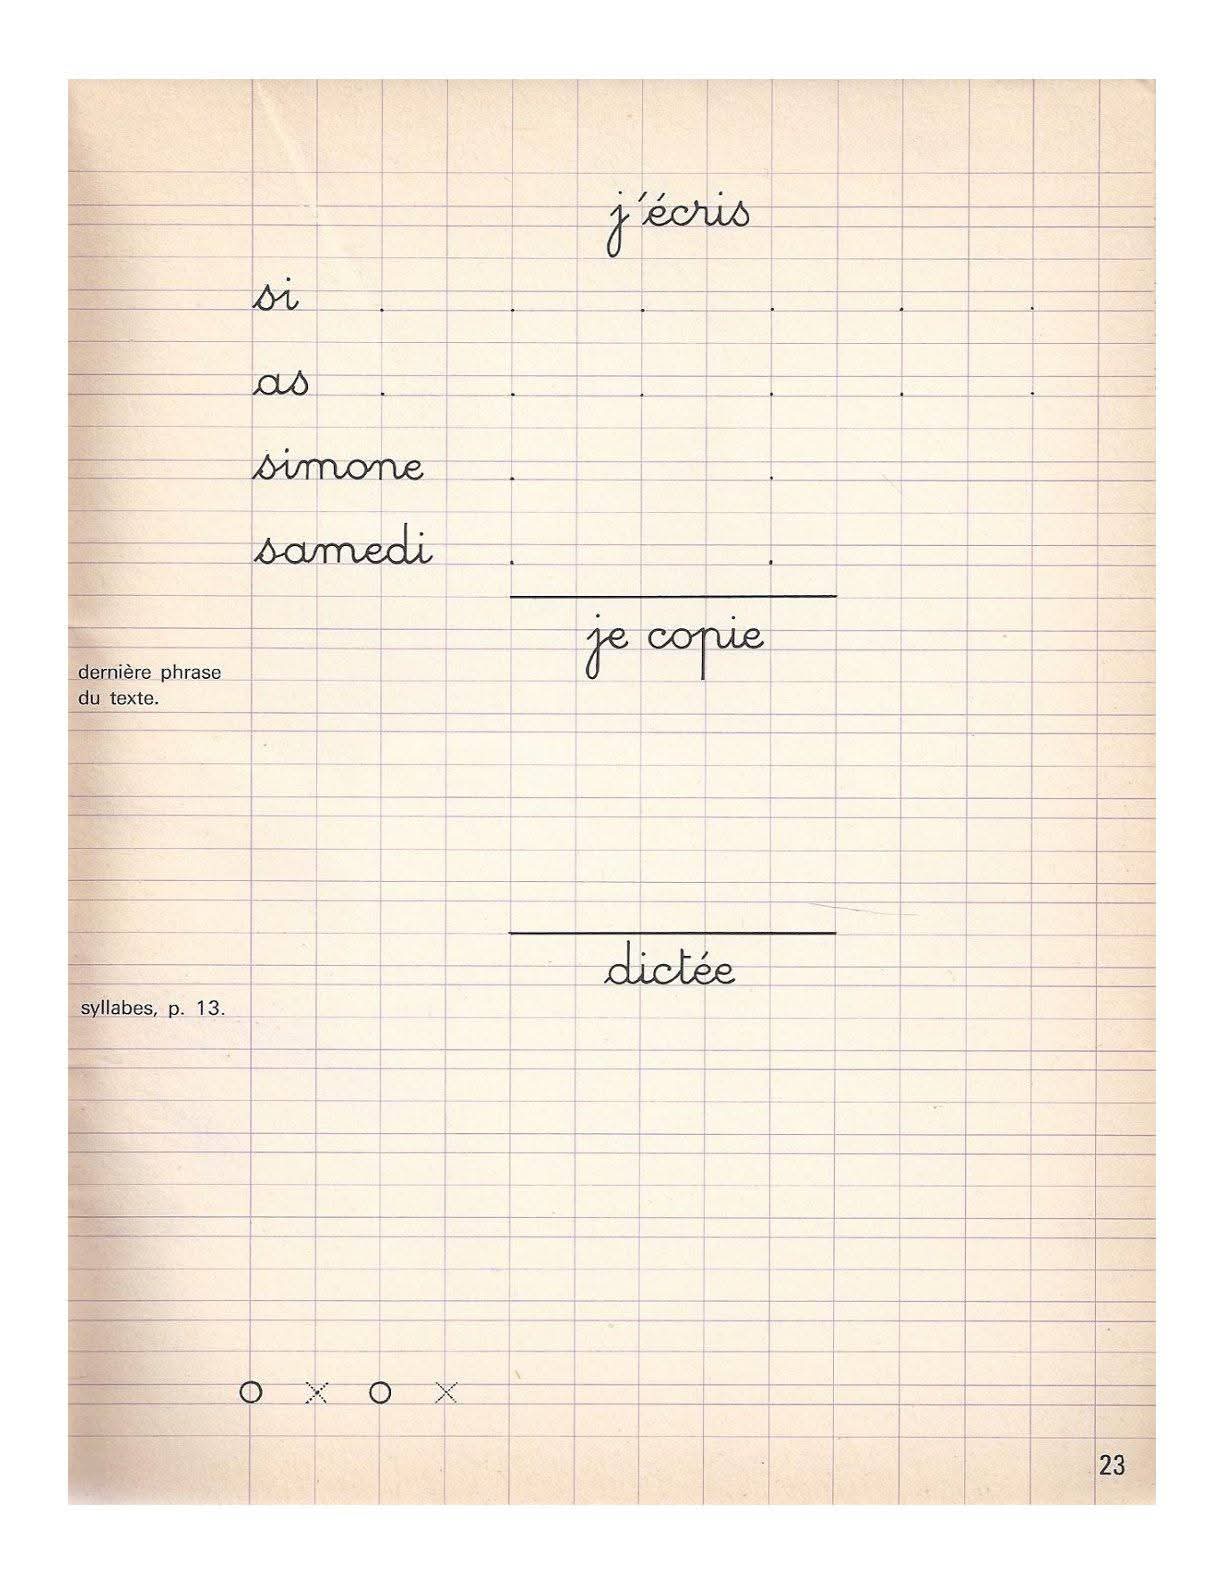 j'écris
si . . . . . .
as . . . . . .
simone . .
samedi . .
je copie
dernière phrase
du texte.
dictée
syllabes, p. 13.
o x o x
23